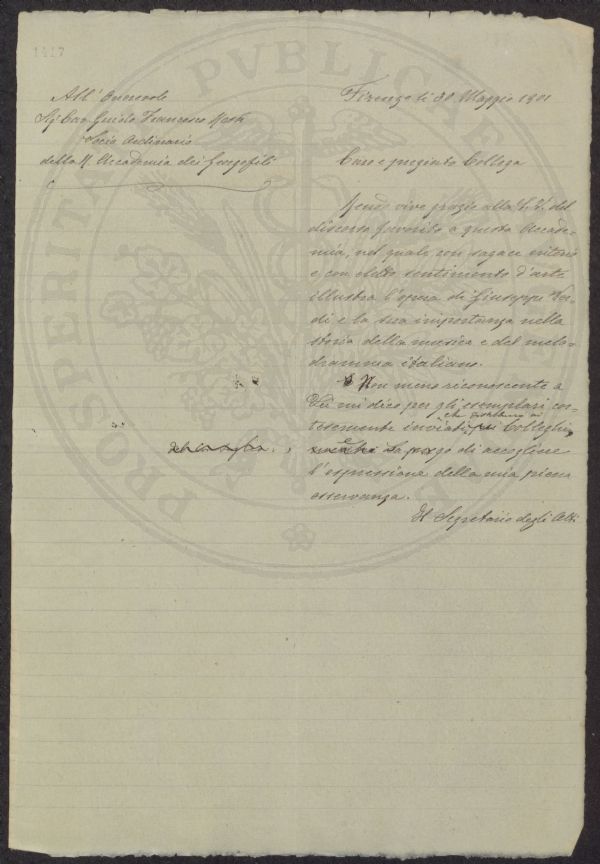 1417
All'Onorevole
Sig. Cav. Guido Francesco
Socio Ordinario
della R. Accademia dei Georgofili
Firenze li 30 Maggio 1901
Caro e pregiato Collega
Rendo vive grazie alla S. V. del
discorso favorito a questa Accade-
mia, nel quale, con sagace criterio
e con eletto sentimento d'arte
illustra l'opera di Giuseppe Ver-
di e la sua importanza nella
storia della musica e del melo-
dramma italiano.
Non meno riconoscente a
Lei mi dico per gli esemplari cor-
tesemente inviati Colleghi,
La prego di accogliere
l'espressione della mia piena
osservanza.
Il Segretario degli Atti
PROSPERITATI PVBLICAE